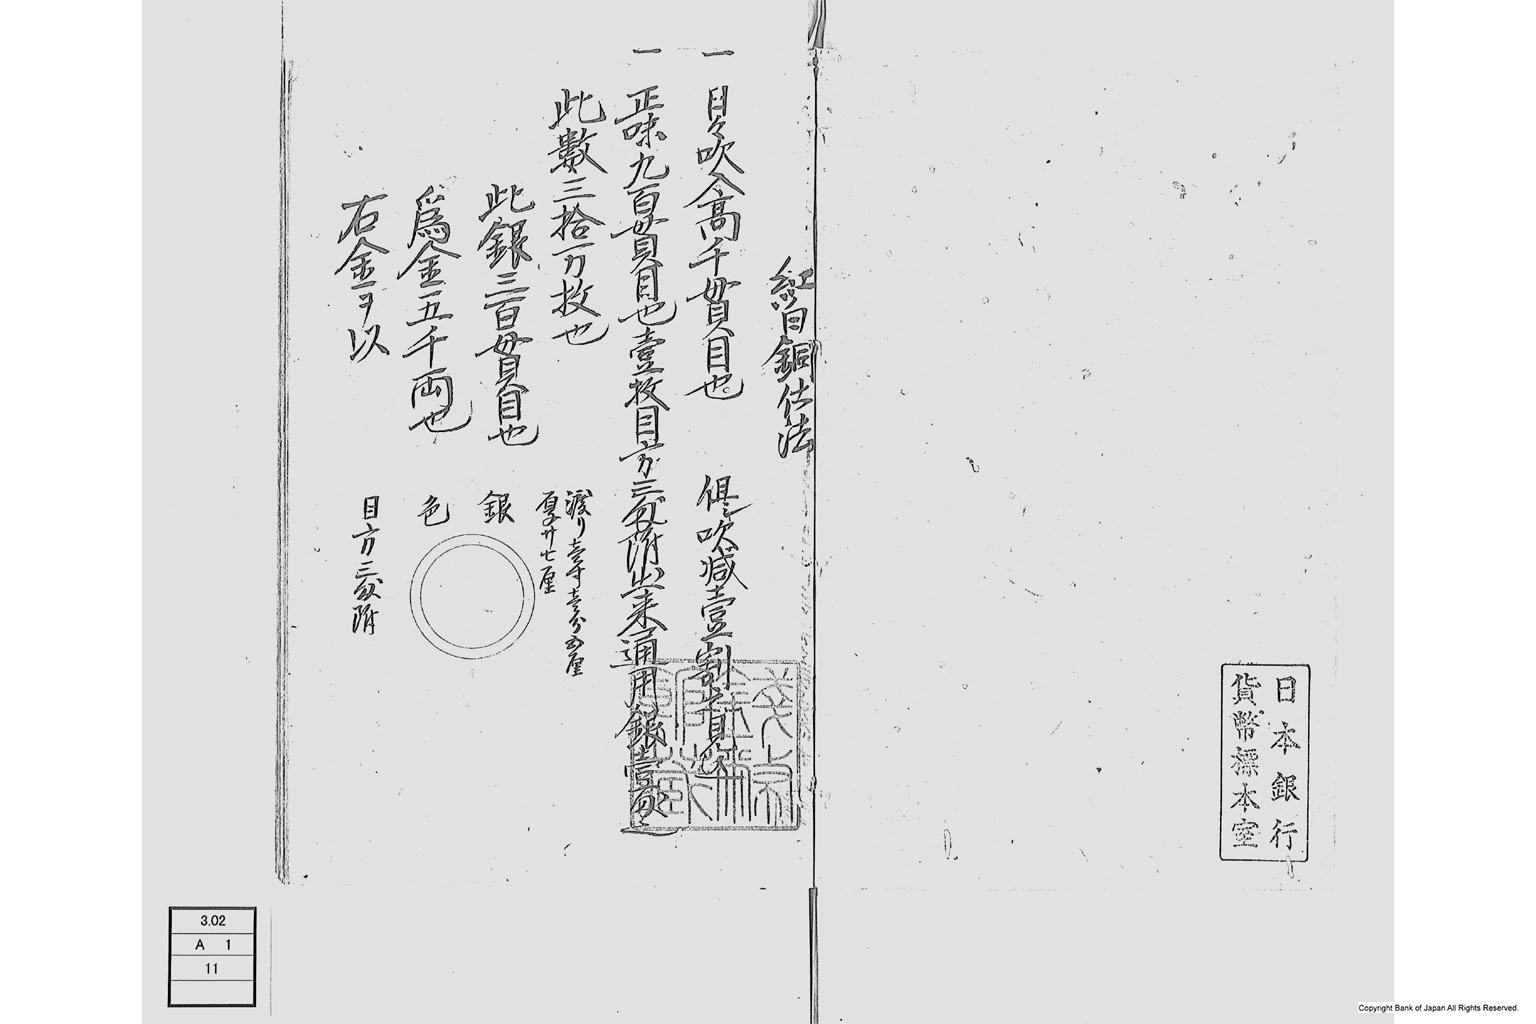 日本銀行
貨幣標本室
銅仕法
一 日々吹入高千貫目也 但吹減壹割
一 正味九百貫目也壹枚目方三匁附出来通用銀壹匁
此數三拾万枚也
渡り壹寸壹分五厘
厚サ廿七厘
此銀三百貫目也
銀
為金五千両也
色
右金ヲ以
目方三匁附
3.02
A 1
11
Copyright Bank of Japan All Rights Reserved.